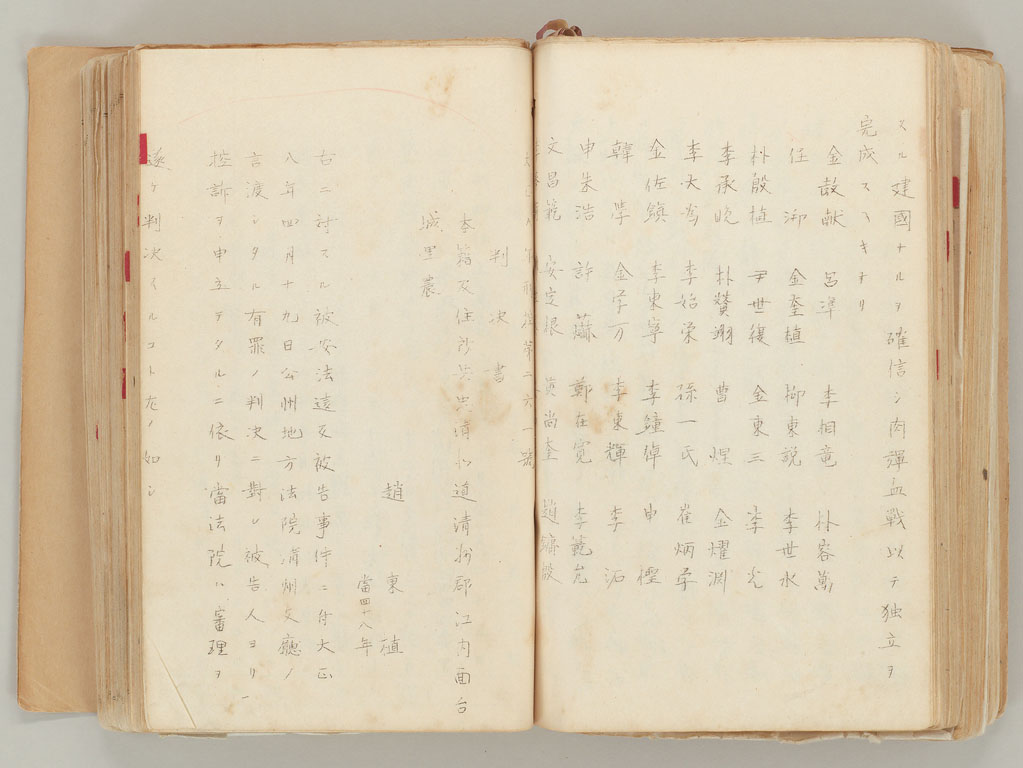 スル建國ナルヲ確信シ肉彈血戰以テ独立ヲ
完成スヘキナリ
金敎献 呂準 李相竜 朴容萬
任 金奎植 李世永
朴殷植 尹世復 金東三 李光
李承晩 朴賛翊 曹煜 金燿淵
李大 李始栄 孫一民 崔炳学
金佐鎮 李東寧 李鐘倬 申檉
韓 金学万 李東輝 李沰
申朱浩 許 鄭在寛 李範允
文昌範 安定根 黃尚奎 趙鏞殷
判決書
本籍及住所共忠清北道清州郡江内面台
城里農
趙東植
當四十八年
右ニ討スル被安法違反被告事件ニ付大正
八年四月十九日公州地方法院清州支廳ノ
言渡シタル有罪ノ判決ニ對シ被告人ヨリ
控訴ヲ申立テタルニ依リ當法院ハ審理ヲ
遂ケ判決スルコト左ノ如シ